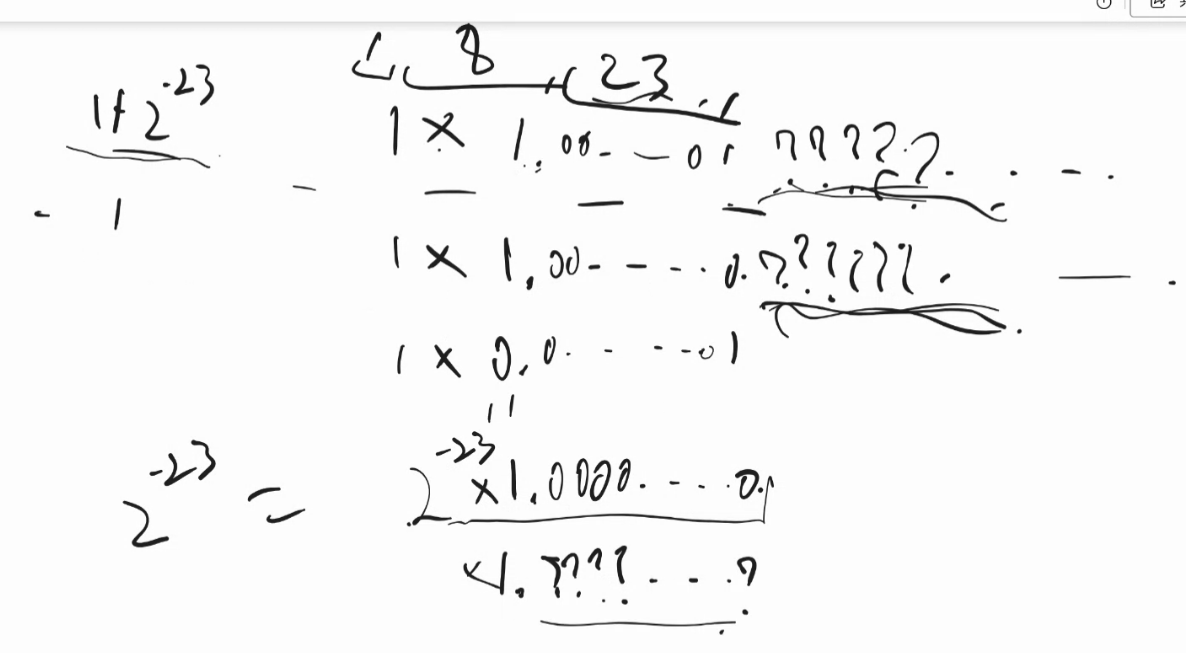 8 23
1+2^-23 1 × 1.00- — 01 ?????. . - .
- 1 -
1 × 1.00- - - . 0.??????. — .
1 × 0.0. - - - - 01
11
2^-23 = 2^-23 ×1.0000. - - - . 0.
×1.????. - - . ?